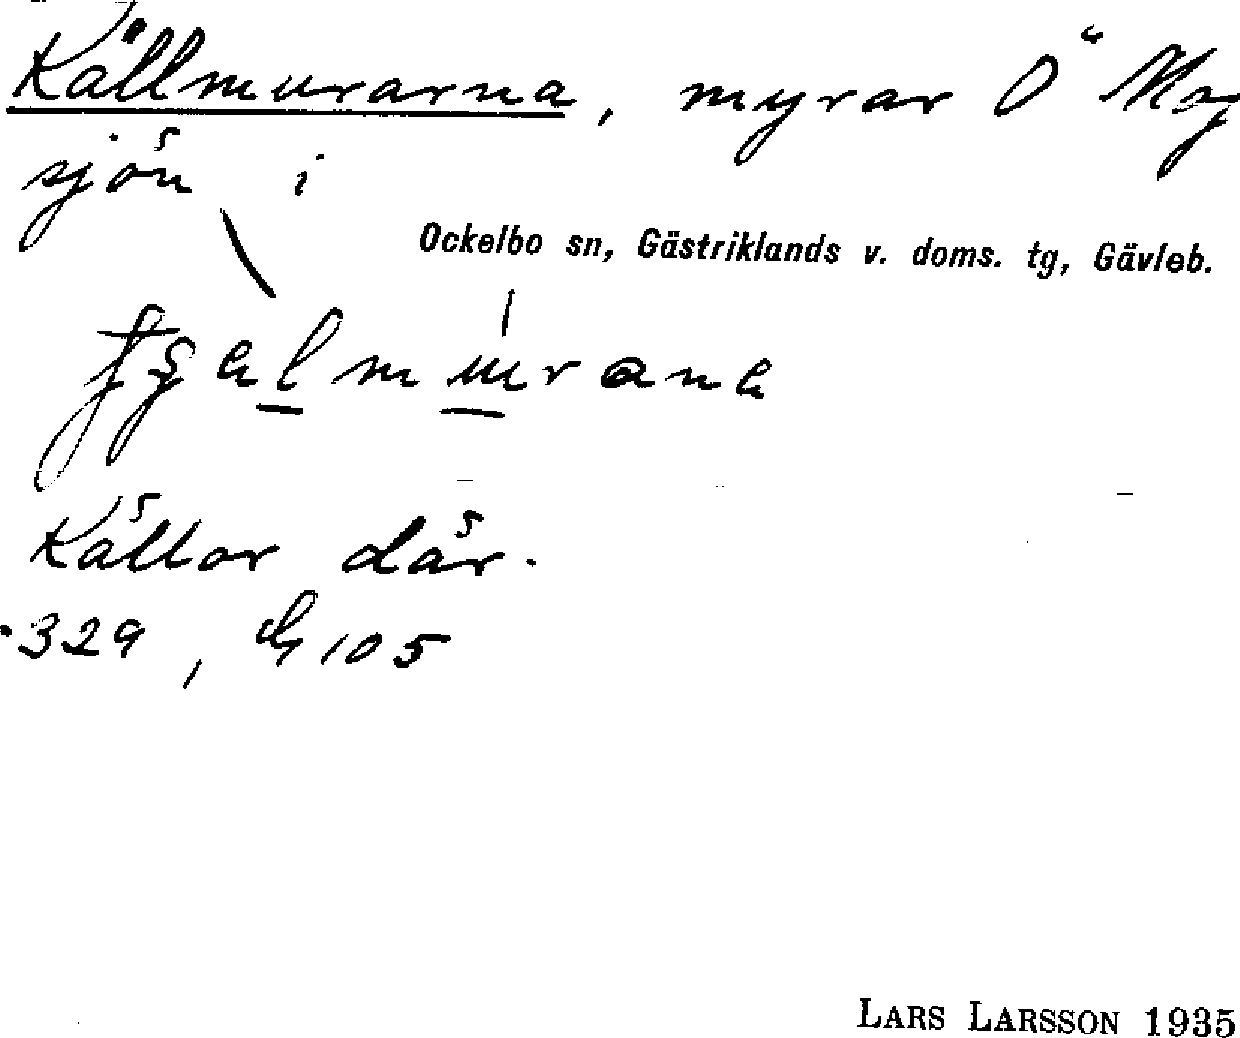 Källmurarna, myrar Ö
sjön i
Ockelbo sn, Gästriklands v. doms. tg, Gävleb.
Källor där.
329, G 105
LARS LARSSON 1935